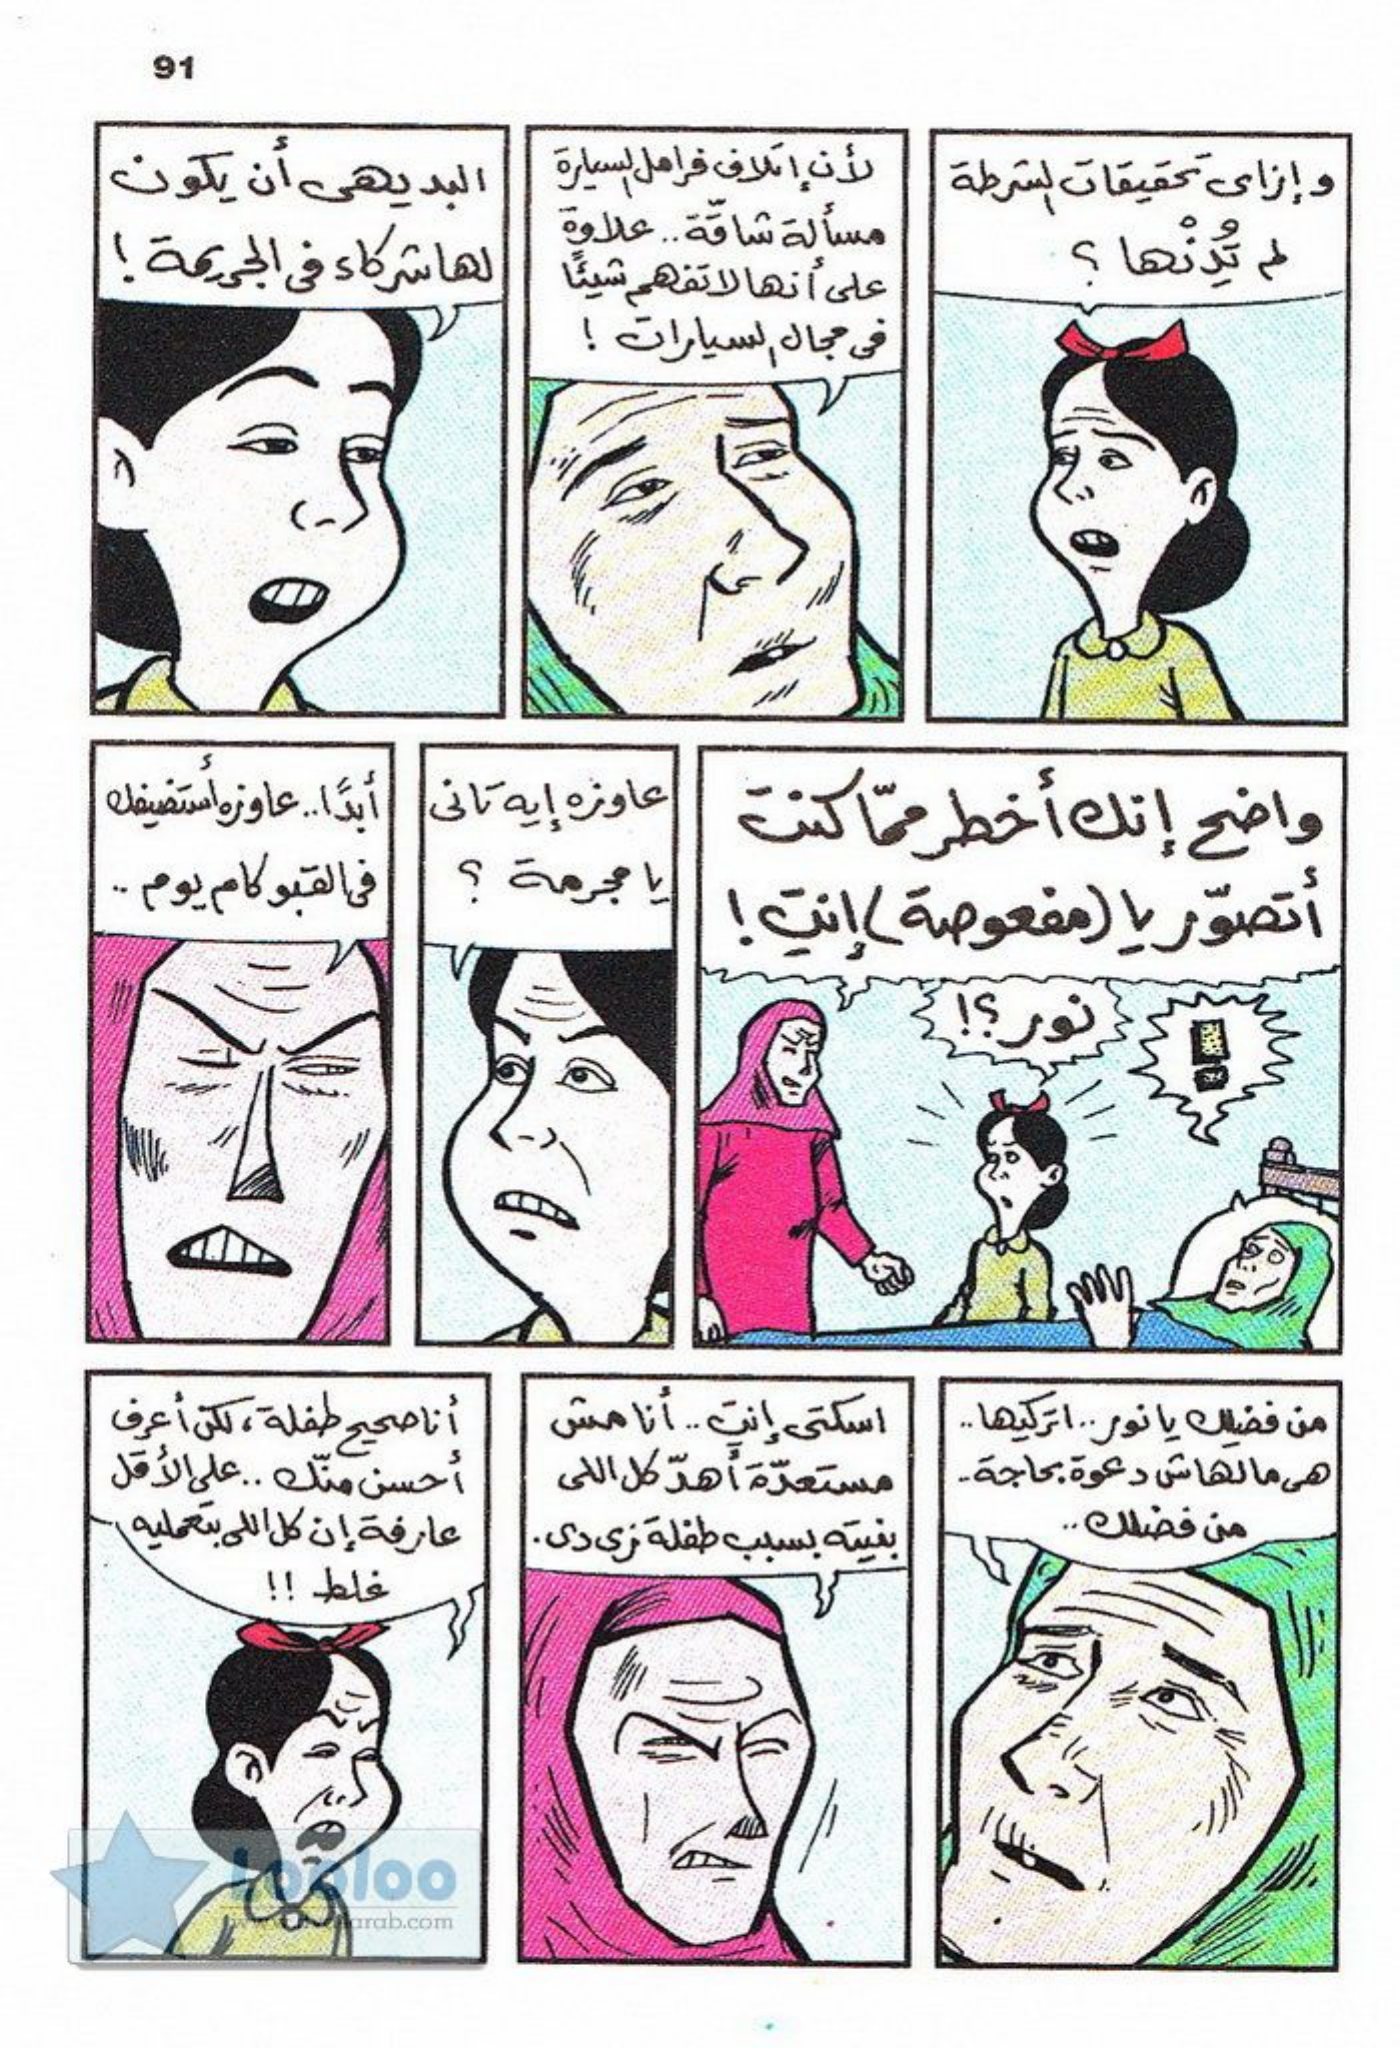 91
وإزاى تحقيقات الشرطة
لم تُدِنْها ؟
لأن إتلاف فرامل السيارة
مسألة شاقّة.. علاوة
على أنها لا تفهم شيئًا
فى مجال السيارات !
البديهى أن يكون
لها شركاء فى الجريمة !
واضح إنك أخطر ممّا كنت
أتصوّر يا (مفعوصة) إنتِ !
نور ؟!
!
عاوزه إيه تانى
يا مجرمة ؟
أبدًا.. عاوزه أستضيفك
فى القبو كام يوم ..
من فضلك يا نور.. اتركيها..
هى مالهاش دعوة بحاجة..
من فضلك ..
اسكتى إنتِ.. أنا مش
مستعدّة أهدّ كل اللى
بنيته بسبب طفلة زى دى.
أنا صحيح طفلة، لكن أعرف
أحسن منّك.. على الأقل
عارفة إن كل اللى بتعمليه
غلط !!
Looloo